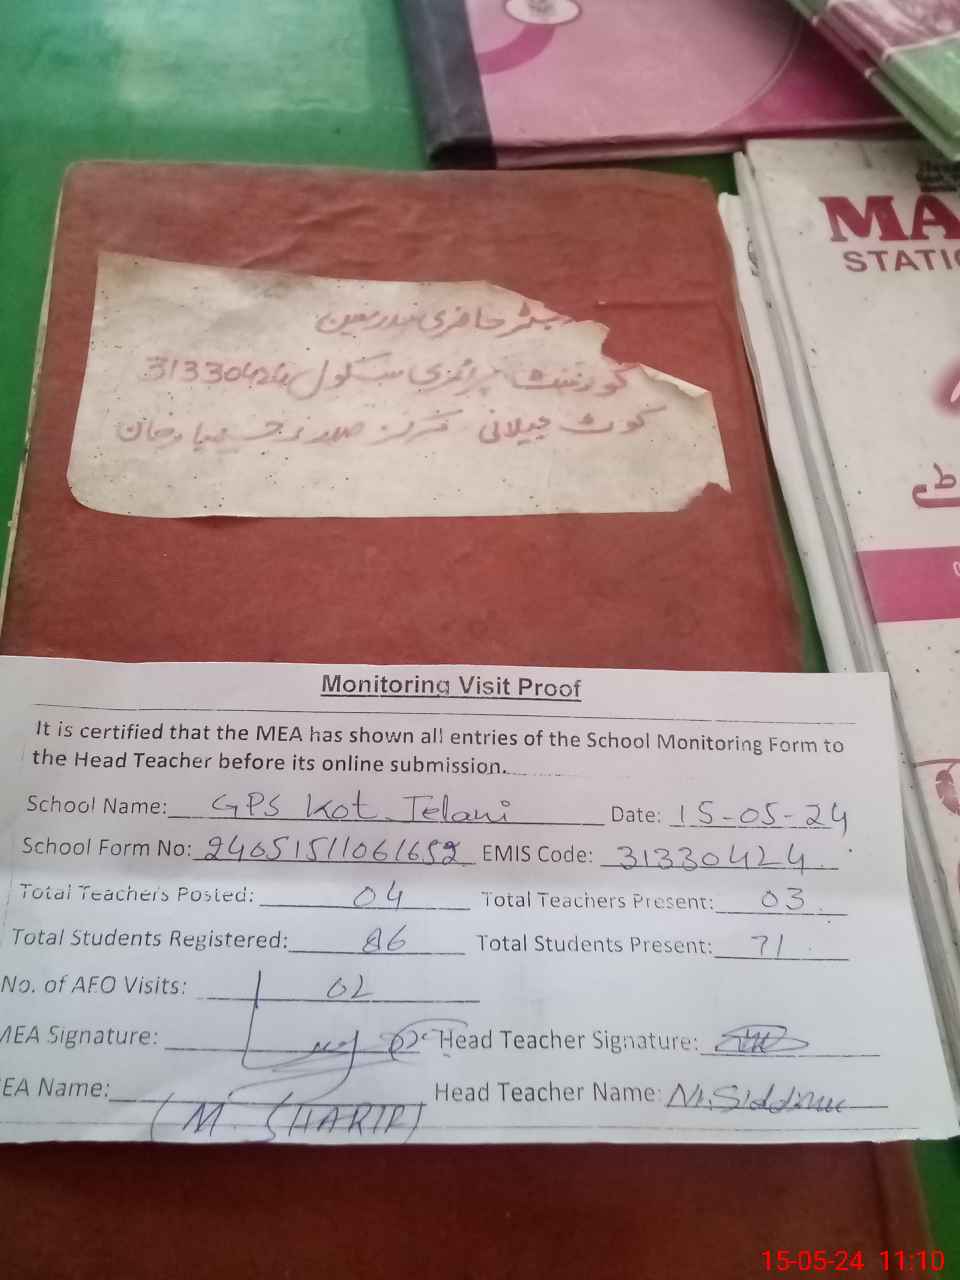 MA
STATIO
رجسٹر حاضری مدرسین
گورنمنٹ پرائمری سکول 31330424
کوٹ جیلانی مرکز صدر رحیم یار خان
Monitoring Visit Proof
It is certified that the MEA has shown all entries of the School Monitoring Form to
the Head Teacher before its online submission.
School Name: GPS Kot Jelani Date: 15-05-24
School Form No: 24051511061652 EMIS Code: 31330424
Total Teachers Posted: 04 Total Teachers Present: 03
Total Students Registered: 86 Total Students Present: 71
No. of AEO Visits: 02
MEA Signature: Head Teacher Signature:
EA Name: (M. SHARIF) Head Teacher Name: M. Siddique
15-05-24 11:10